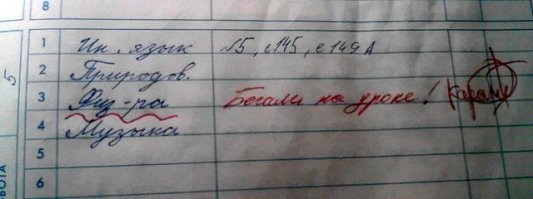 8
1 Ин. язык №5, с145, с149А
2 Природов.
3 Физ-ра Бегали на уроке!
4 Музыка
5
5
6